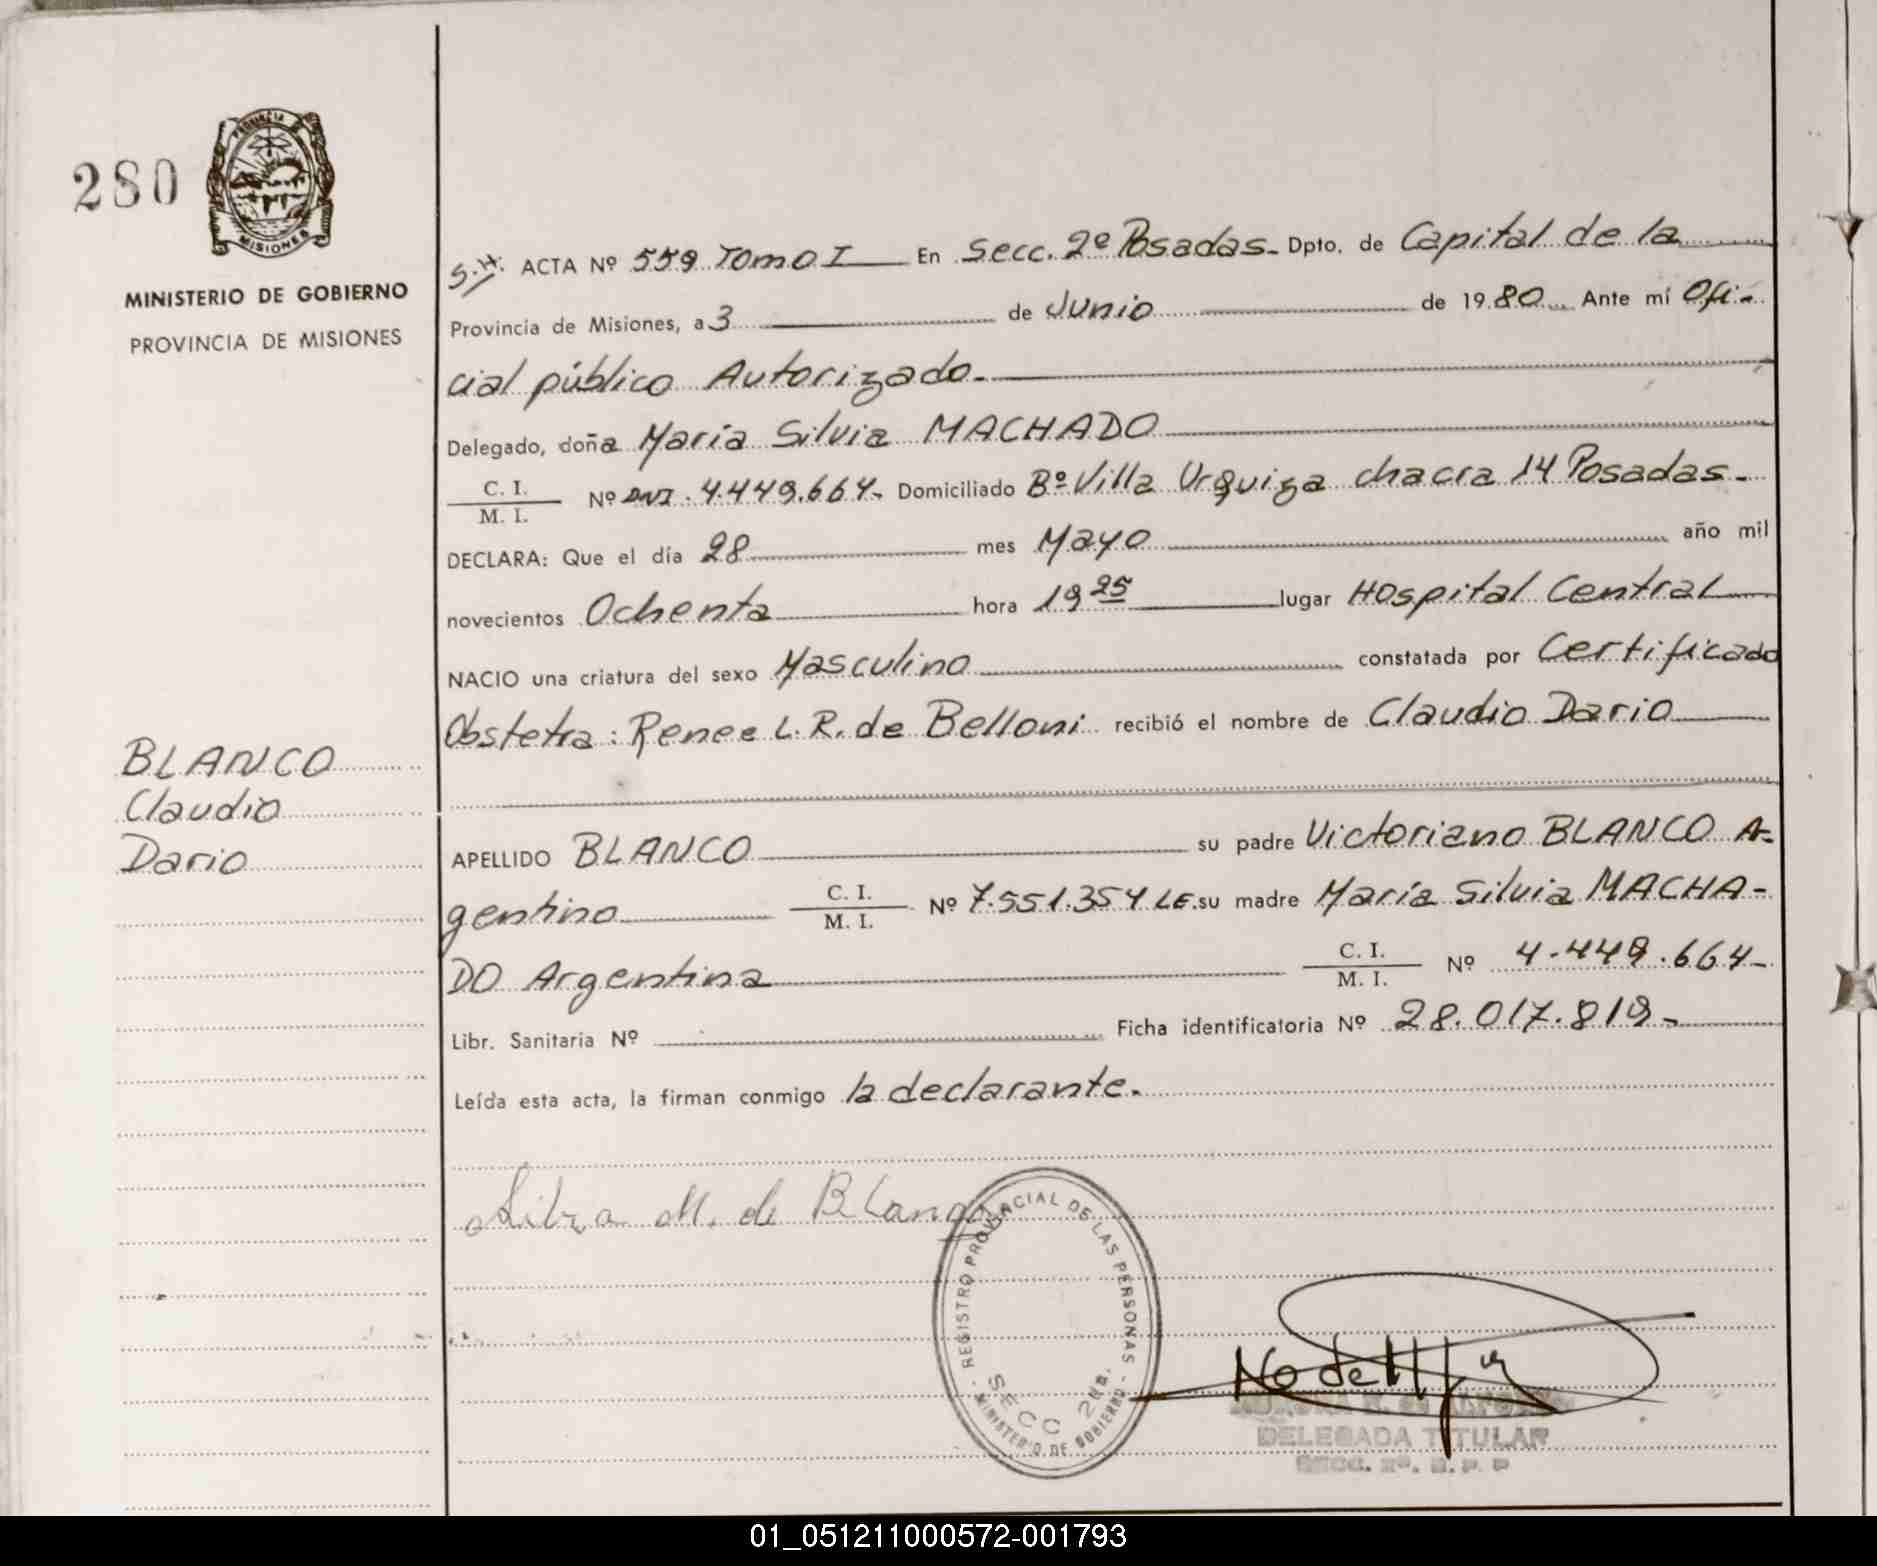 280
PROVINCIA DE
MISIONES
MINISTERIO DE GOBIERNO
PROVINCIA DE MISIONES
S.H. ACTA Nº 559 Tomo I En Secc. 2º Posadas- Dpto. de Capital de la
Provincia de Misiones, a 3 de Junio de 1980 Ante mí Ofi-
cial público Autorizado.
Delegado, doña María Silvia MACHADO
C. I.
M. I. Nº DNI. 4.449.664- Domiciliado Bº Villa Urquiza chacra 14 Posadas-
DECLARA: Que el día 28 mes Mayo año mil
novecientos Ochenta hora 19 25 lugar Hospital Central
NACIO una criatura del sexo Masculino constatada por Certificado
Obstetra: Renee L. R. de Belloni recibió el nombre de Claudio Dario
BLANCO
Claudio
Dario
APELLIDO BLANCO su padre Victoriano BLANCO Ar-
gentino C. I.
M. I. Nº 7.551.354 LE. su madre María Silvia MACHA-
DO Argentina C. I.
M. I. Nº 4.449.664-
Libr. Sanitaria Nº Ficha identificatoria Nº 28.017.819-
Leída esta acta, la firman conmigo la declarante.
M. de Blanco
REGISTRO PROVINCIAL DE LAS PERSONAS
SECC 2da.
MINISTERIO DE GOBIERNO
DELEGADA TITULAR
01_051211000572-001793